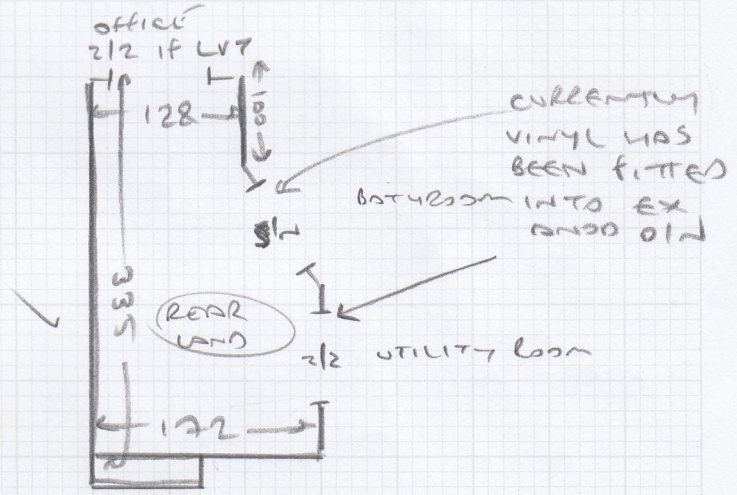 office
2/2 if LVT
128
100
CURRENTLY
VINYL HAS
BEEN FITTED
INTO EX
ANOD O/N
BATHROOM
S/N
335
REAR
LAND
2/2 UTILITY ROOM
172